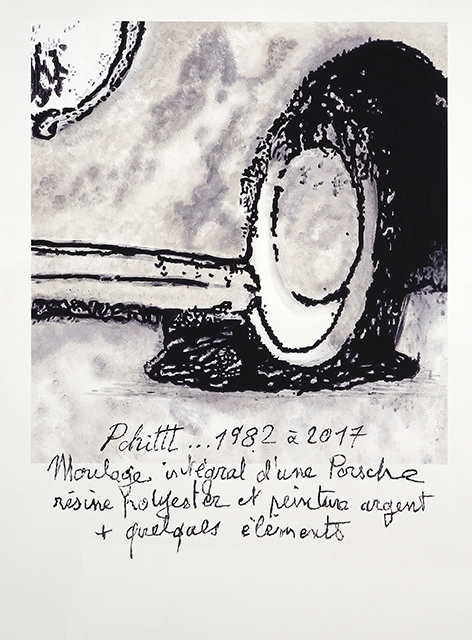 Pchittt...1982 à 2017
Moulage intégral d'une Porsche
résine polyester et peinture argent
+ quelques éléments